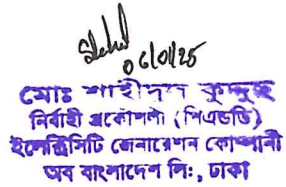 06/01/25
মোঃ শাহীদুল কুদ্দুছ
নির্বাহী প্রকৌশলী (পিএন্ডডি)
ইলেক্ট্রিসিটি জেনারেশন কোম্পানী
অব বাংলাদেশ লিঃ, ঢাকা